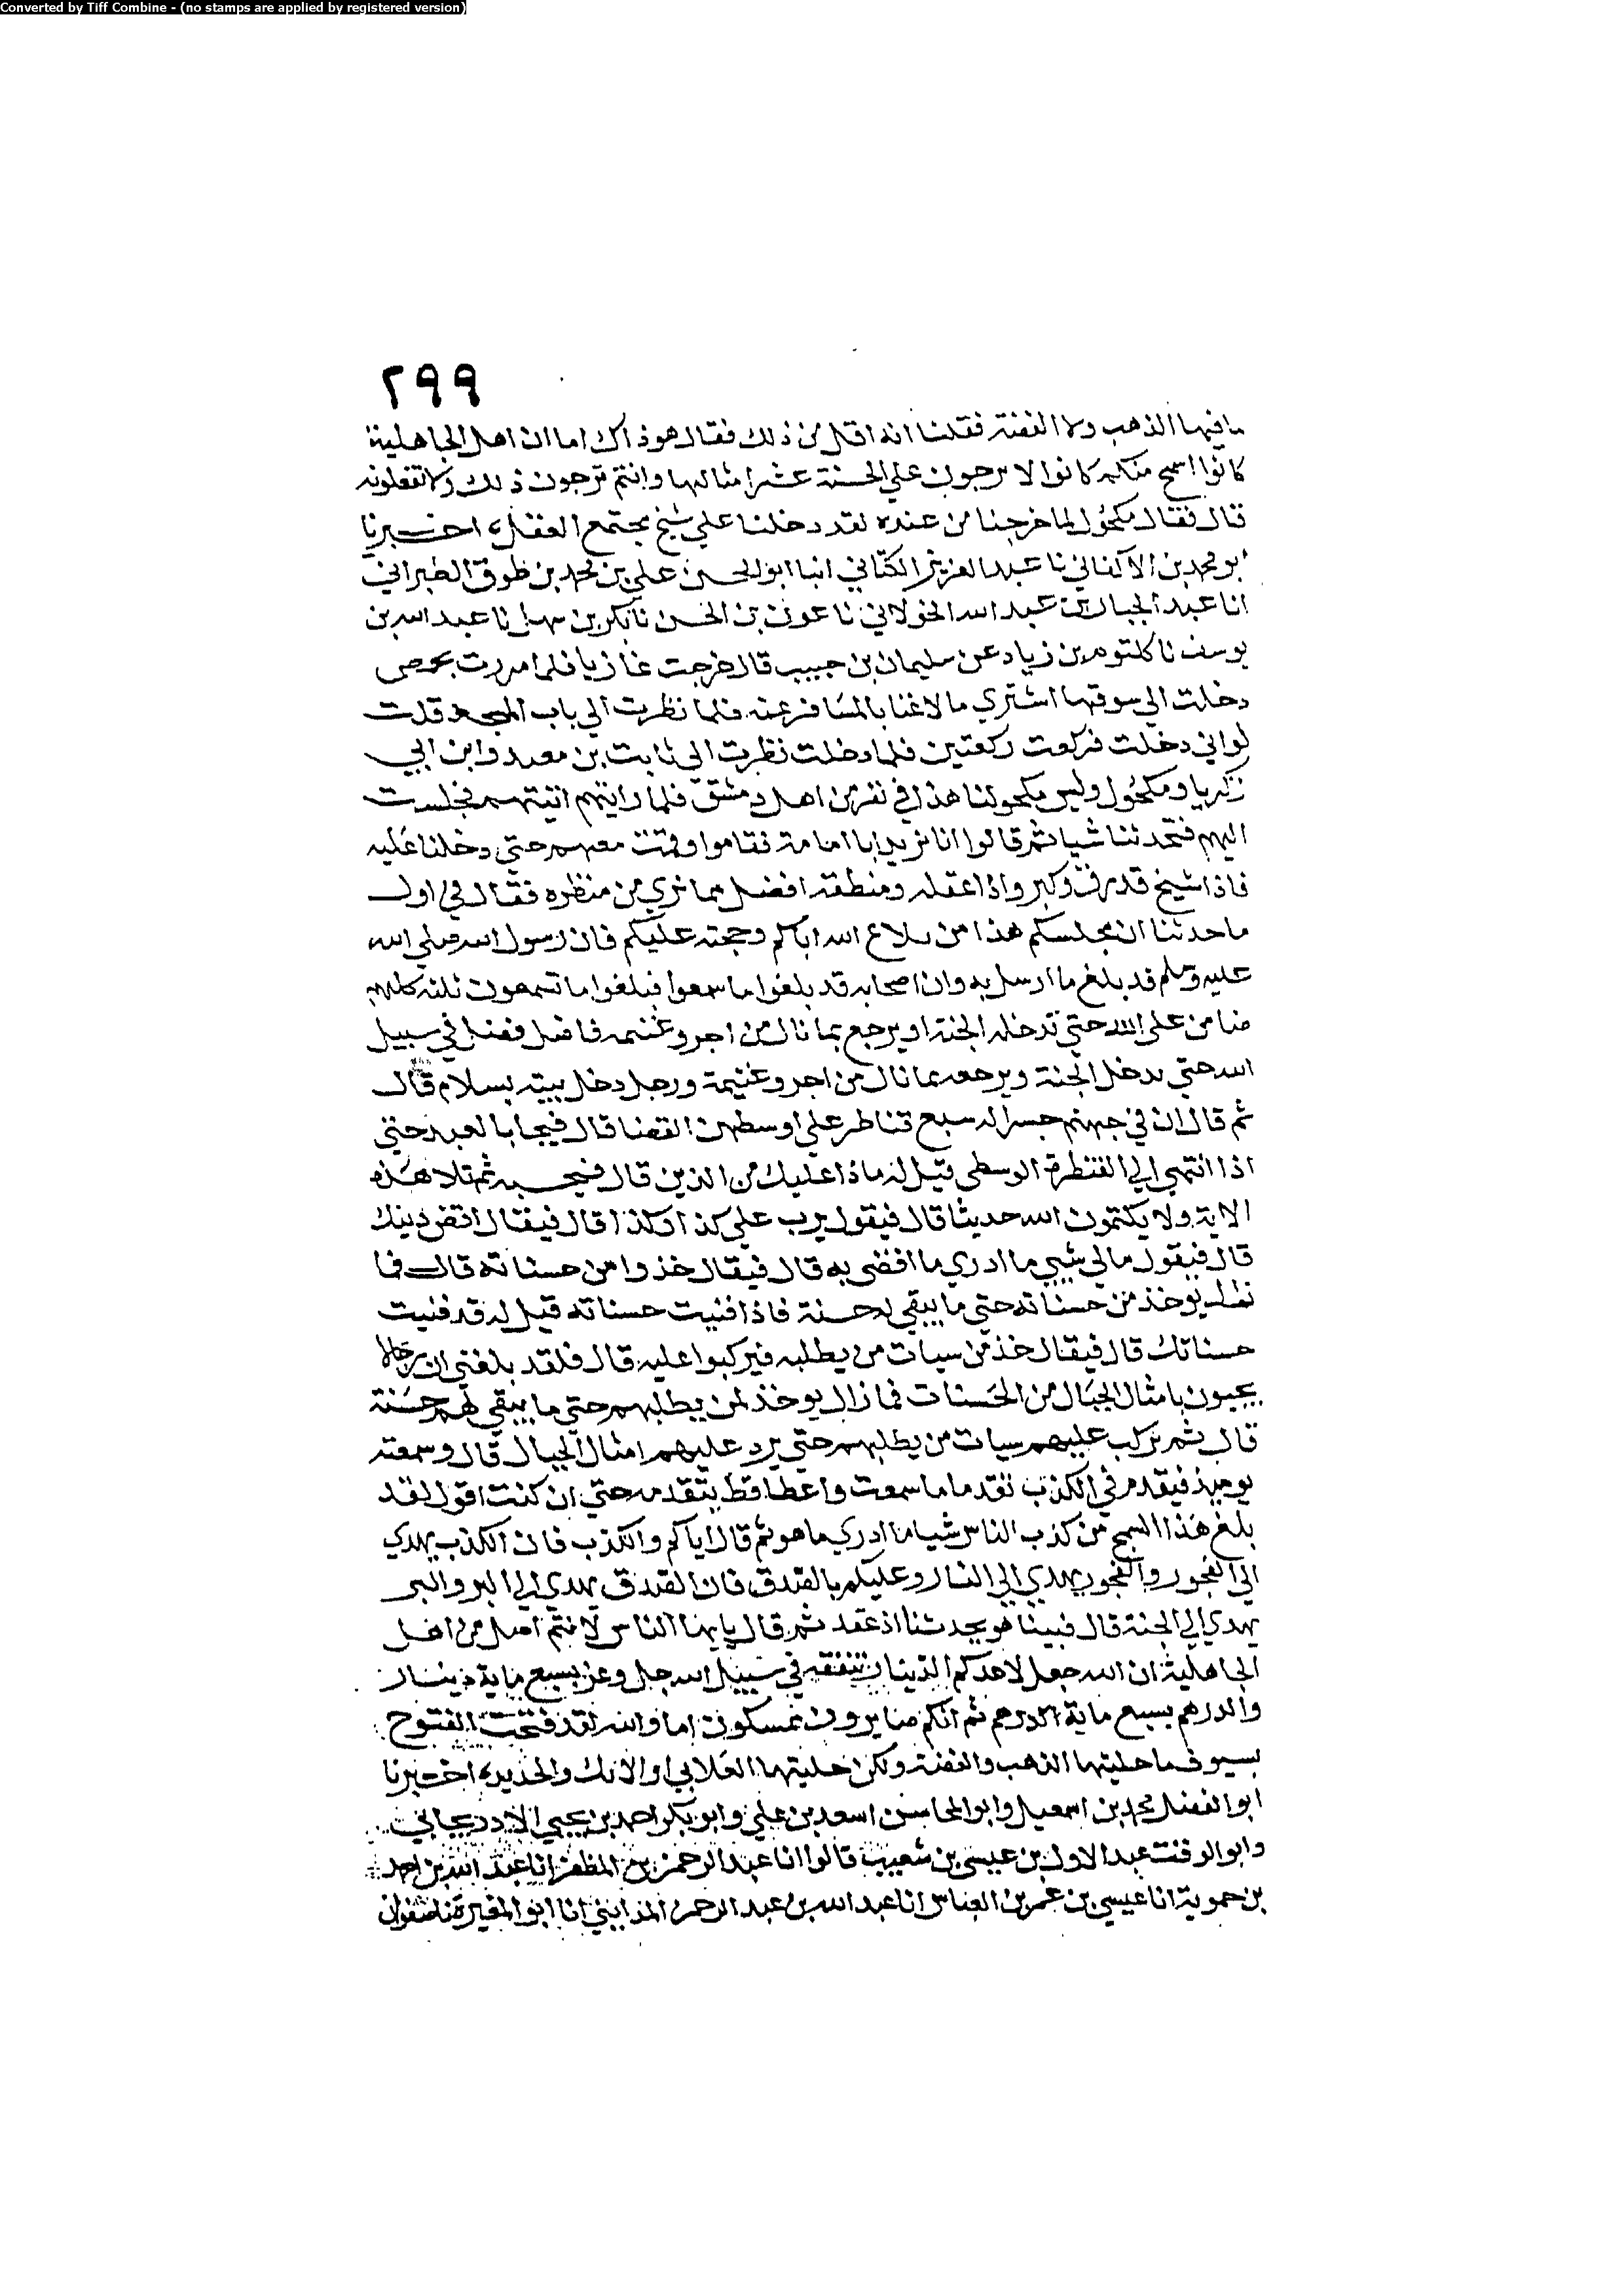 Converted by Tiff Combine - (no stamps are applied by registered version)
٢٩٩
ما فيها الذهب ولا الفضة فقلنا انه اقل من ذلك فقال هو ذاك اما ان اهل الجاهلية
كانوا اسمح منكم كانوا لا يرجون علي الحسنة عشر امثالها وانتم ترجون ذلك ولا تفعلونه
قال فقال مكحول لما خرجنا من عنده لقد دخلنا علي شيخ مجتمع العقل، اخبرنا
ابو محمد بن الاكفاني نا عبد العزيز الكتاني انبا ابو الحسن علي بن محمد بن طوق الطبراني
انا عبد الجبار بن عبد الله الخولاني نا عون بن الحسن نا بكر بن سهل نا عبد الله بن
يوسف نا كلثوم بن زياد عن سليمان بن حبيب قال خرجت غازيا فلما مررت بحمص
دخلت الي سوقها اشتري ما لا غنا بالمسافر عنه فلما نظرت الي باب المسجد قلت
لو اني دخلت فركعت ركعتين فلما دخلت نظرت الي ثابت بن معبد وابن ابي
زكريا ومكحول وليس مكحولنا هذا في نفر من اهل دمشق فلما رايتهم اتيتهم فجلست
اليهم فتحدثنا شيا ثم قالوا انا نريد ابا امامة فقاموا وقمت معهم حتي دخلنا عليه
فاذا شيخ قد رق وكبر واذا عقله ومنطقه افضل مما نري من منظره فقال في اول
ما حدثنا ان مجلسكم هذا من بلاغ الله اياكم وحجته عليكم فان رسول الله صلي الله
عليه وسلم قد بلغ ما ارسل به وان اصحابه قد بلغوا ما سمعوا فبلغوا ما تسمعون ثلثه كلهم
ضامن علي الله حتي تدخله الجنة او يرجع بما نال من اجر وغنيمه فاضل فضل في سبيل
الله حتي يدخل الجنة ويرجعه بما نال من اجر وغنيمة ورجل دخل بيته بسلام قال
ثم قال ان في جهنم جسرا له سبع قناطر علي اوسطهن القضا قال فيجا بالعبد حتي
اذا انتهي الي القنطرة الوسطي قيل له ماذا عليك من الدين قال فيحسبه ثم تلا هذه
الاية ولا يكتمون الله حديثا قال فيقول يرب علي كذا وكذا قال فيقال اقض دينك
قال فيقول مالي شيي ما ادري ما اقضي به قال فيقال خذوا من حسناته قال فما
زال يوخذ من حسناته حتي ما يبقي له حسنة فاذا فنيت حسناته قيل له قد فنيت
حسناتك قال فيقال خذ من سيات من يطلبه فيركبوا عليه قال فلقد بلغني ان رجالا
يجيون بامثال الجبال من الحسنات فما زال يوخذ لمن يطلبهم حتي ما يبقي لهم حسنة
قال ثم تركب عليهم سيات من يطلبهم حتي يرد عليهم امثال الجبال قال وسمعته
يوميذ فيقدم في الكذب تقدما ما سمعت واعظا قط يتقدمه حتي ان كنت اقول لقد
بلغ هذا السمح من كذب الناس شيا ما ادري ما هو ثم قال اياكم والكذب فان الكذب يهدي
الي الفجور والفجور يهدي الي النار وعليكم بالصدق فان الصدق يهدي الي البر والبر
يهدي الي الجنة قال فبينا هو يحدثنا اذ عقد ثم قال يايها الناس لانتم اضل من اهل
الجاهلية ان الله جعل لاحدكم الدينار ينفقه في سبيل الله جل وعز بسبع ماية دينار
والدرهم بسبع ماية الدرهم ثم انكم صايرون تمسكون اما والله لقد فتحت الفتوح
بسيوف ما حليتها الذهب والفضة ولكن حليتها العلابي او الانك والحديد، اخبرنا
ابو الفضل محمد بن اسمعيل وابو المحاسن اسعد بن علي وابو بكر احمد بن يحيي الادربجاني
وابو الوقت عبد الاول بن عيسي بن شعيب قالوا انا عبد الرحمن بن المظفر انا عبد الله بن احمد
بن حموية انا عيسي بن عمر بن العباس انا عبد الله بن عبد الرحمن الدارمي انا ابو المغيرة نا صفوان